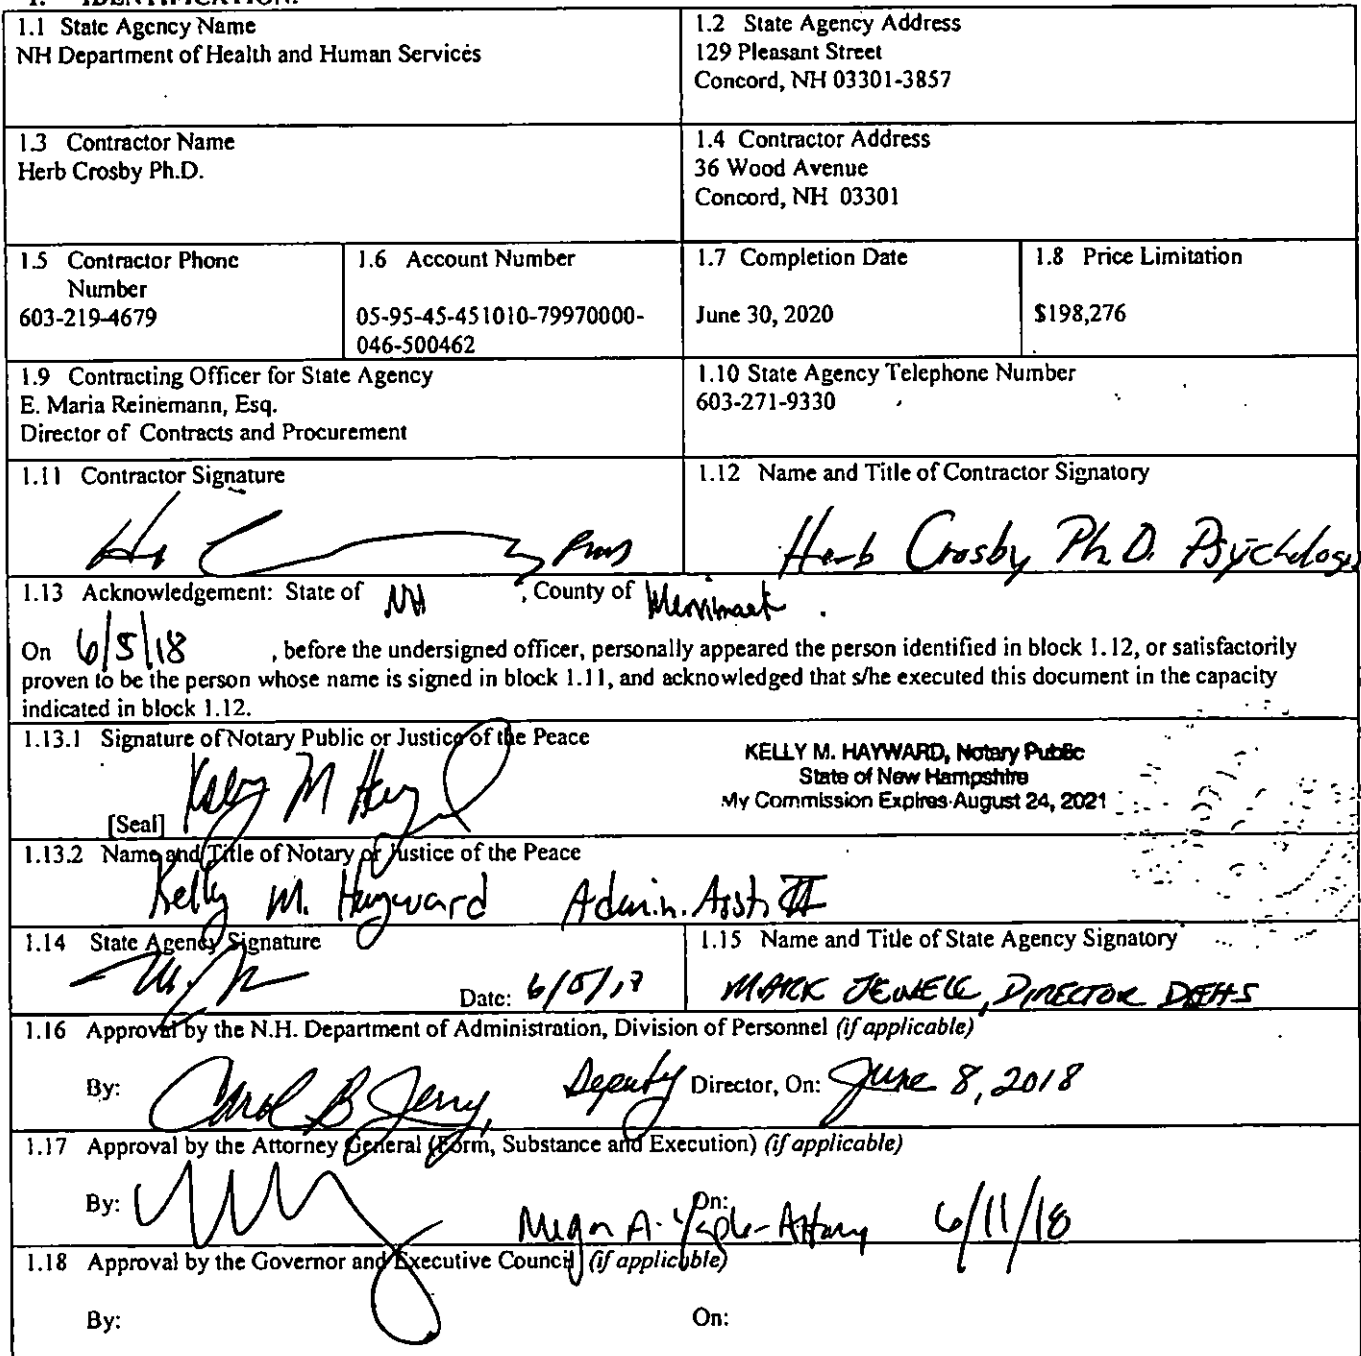 1. IDENTIFICATION.
1.1 State Agency Name
NH Department of Health and Human Services
1.2 State Agency Address
129 Pleasant Street
Concord, NH 03301-3857
1.3 Contractor Name
Herb Crosby Ph.D.
1.4 Contractor Address
36 Wood Avenue
Concord, NH 03301
1.5 Contractor Phone
Number
603-219-4679
1.6 Account Number
05-95-45-451010-79970000-
046-500462
1.7 Completion Date
June 30, 2020
1.8 Price Limitation
$198,276
1.9 Contracting Officer for State Agency
E. Maria Reinemann, Esq.
Director of Contracts and Procurement
1.10 State Agency Telephone Number
603-271-9330
1.11 Contractor Signature
1.12 Name and Title of Contractor Signatory
Herb Crosby Ph.D. Psychologist
1.13 Acknowledgement: State of NH , County of Merrimack .
On 6/5/18 , before the undersigned officer, personally appeared the person identified in block 1.12, or satisfactorily
proven to be the person whose name is signed in block 1.11, and acknowledged that s/he executed this document in the capacity
indicated in block 1.12.
1.13.1 Signature of Notary Public or Justice of the Peace
Kelly M Hayward
[Seal]
KELLY M. HAYWARD, Notary Public
State of New Hampshire
My Commission Expires August 24, 2021
1.13.2 Name and Title of Notary or Justice of the Peace
Kelly M. Hayward Admin. Asst. II
1.14 State Agency Signature
Date: 6/5/18
1.15 Name and Title of State Agency Signatory
MARK JEWELL, DIRECTOR DEHS
1.16 Approval by the N.H. Department of Administration, Division of Personnel (if applicable)
By: Deputy Director, On: June 8, 2018
1.17 Approval by the Attorney General (Form, Substance and Execution) (if applicable)
By: On: Megan A. Yaple-Attorney 6/11/18
1.18 Approval by the Governor and Executive Council (if applicable)
By: On: